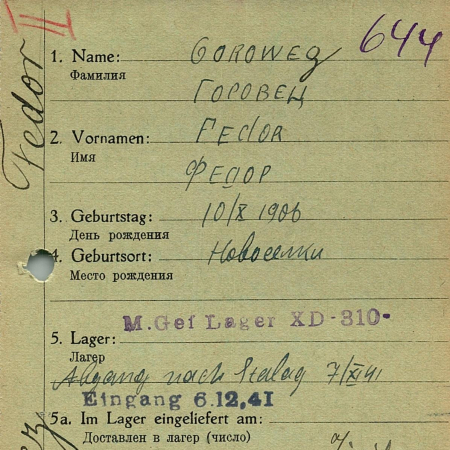 II
644
Fedor
1. Name: GOROWEZ
Фамилия
ГОРОВЕЦ
2. Vornamen: FEdOR
Имя
ФЕДОР
3. Geburtstag: 10/X 1906
День рождения
4. Geburtsort: Новоселки
Место рождения
M.Gef Lager XD-310-
5. Lager:
Лагер
Abgang nach Stalag 7/XI 41
Eingang 6.12.41
5a. Im Lager eingeliefert am:
Доставлен в лагер (число)